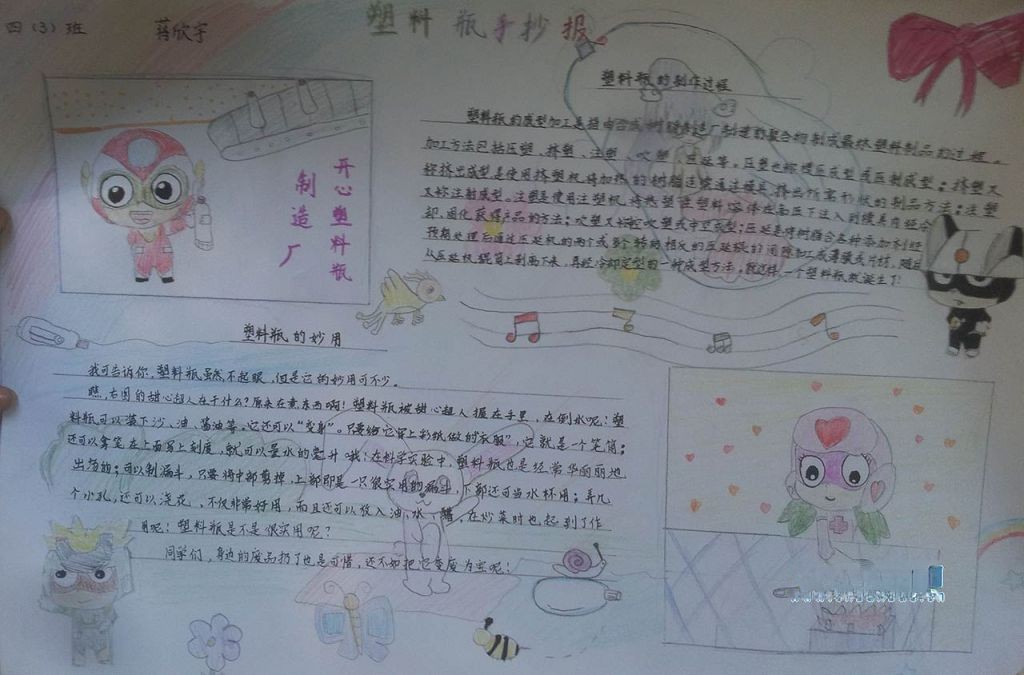 四（3）班
蒋欣宇
塑料瓶手抄报
塑料瓶的制作过程
塑料瓶的成型加工是指由合成树脂制造厂制造的聚合物制成最终塑料制品的过程。
加工方法包括压塑、挤塑、注塑、吹塑、压延等。压塑也称模压成型或压制成型；挤塑又
称挤出成型是使用挤塑机将加热的树脂连续通过模具，挤出所需形状的制品方法；注塑
又称注射成型。注塑是使用注塑机将热塑性塑料熔体在高压下注入到模具内经冷
却、固化获得产品的方法；吹塑又称吹塑或中空成型；压延是将树脂合各种添加剂经
预期处理后通过压延机的两个或多个转动相反的压延辊的间隙加工成薄膜或片材，随后
从压延机辊筒上剥离下来，再经冷却定型的一种成型方法。就这样一个塑料瓶就诞生了！
开心塑料瓶
制造厂
塑料瓶的妙用
我可告诉你，塑料瓶虽然不起眼，但是它的妙用可不少。
瞧，右图的甜心超人在干什么？原来在煮东西啊！塑料瓶被甜心超人握在手里，在倒水呢！塑
料瓶可以装下沙、油、酱油等。它还可以“变身”。只要给它穿上彩纸做的“衣服”，它就是一个笔筒；
还可以拿笔在上面写上刻度，就可以量水的毫升哦！在科学实验中，塑料瓶也是经常华丽丽地
出场的；可以制漏斗，只要将中部剪掉，上部即是一只很实用的漏斗，下部还可当水杯用；弄几
个小孔，还可以浇花，不仅非常好用，而且还可以放入油、水、醋，在炒菜时也起到了作
用呢！塑料瓶是不是很实用呢？
同学们，身边的废品扔了也是可惜，还不如把它变废为宝呢！